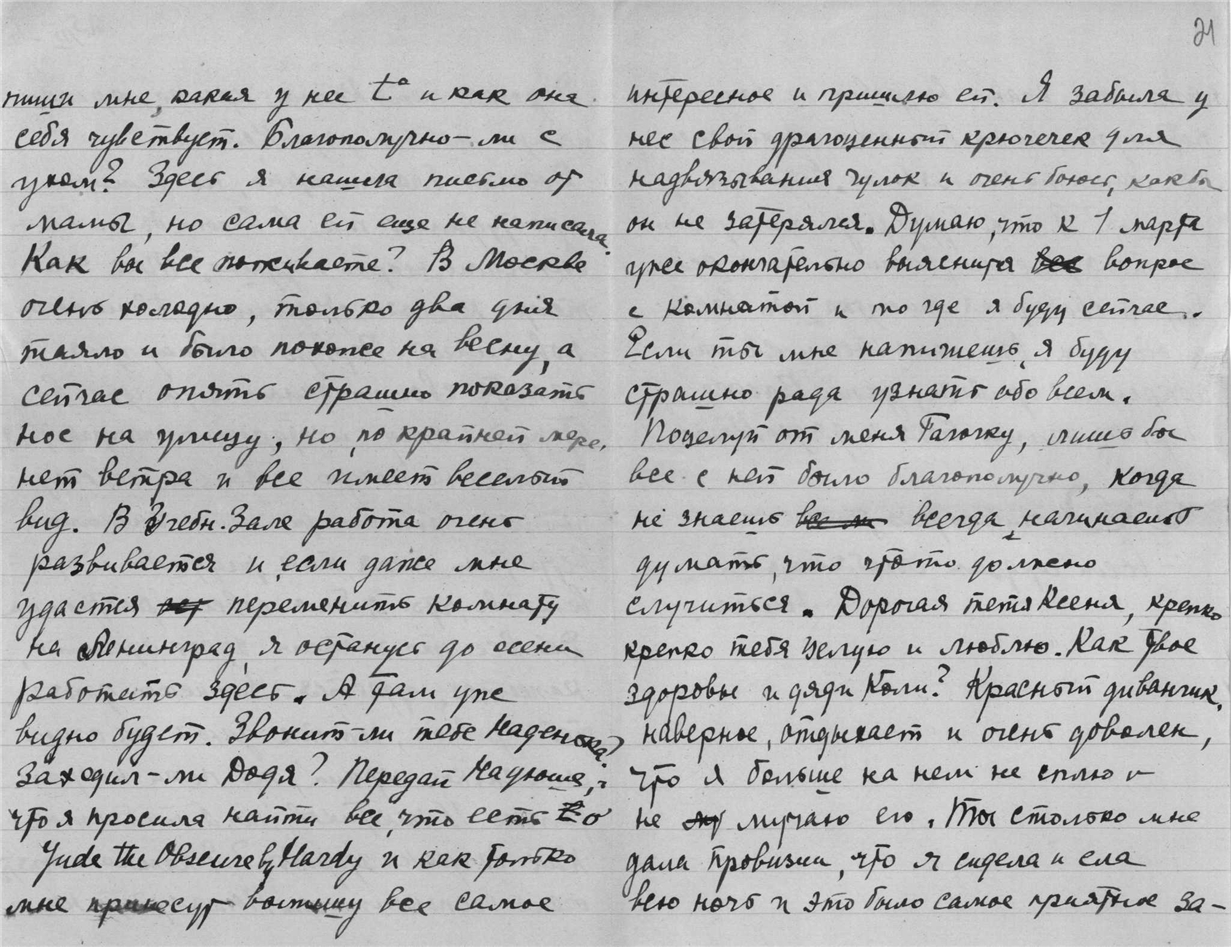 21
пиши мне, какая у нее t° и как она
себя чувствует. Благополучно-ли с
ухом? Здесь я нашла письмо от
мамы, но сама ей еще не написала.
Как вы все поживаете? В Москве
очень холодно, только два дня
таяло и было похоже на весну, а
сейчас опять страшно показать
нос на улицу, но, по крайней мере,
нет ветра и все имеет веселый
вид. В Учебн. Зале работа очень
развивается и если даже мне
удастся переменить комнату
на Ленинград, я останусь до осени
работать здесь. А там уже
видно будет. Звонит-ли тебе Наденька?
Заходил-ли Додя? Передай Надюше,
что я просила найти все, что есть о
Jude the Obscure by Hardy и как только
мне принесут выпишу все самое
интересное и пришлю ей. Я забыла у
нес свой драгоценный крючечек для
надвязывания чулок и очень боюсь, как бы
он не затерялся. Думаю, что к 1 марта
уже окончательно выяснится вопрос
с комнатой и то где я буду сейчас.
Если ты мне напишешь, я буду
страшно рада узнать обо всем.
Поцелуй от меня Гагочку, лишь бы
все с ней было благополучно, когда
не знаешь всегда начинаешь
думать, что что-то должно
случиться. Дорогая тетя Ксеня, крепко
крепко тебя целую и люблю. Как твое
здоровье и дяди Коли? Красный диванчик,
наверное, отдыхает и очень доволен,
что я больше на нем не сплю и
не мучаю его. Ты столько мне
дала провизии, что я сидела и ела
всю ночь и это было самое приятное за-